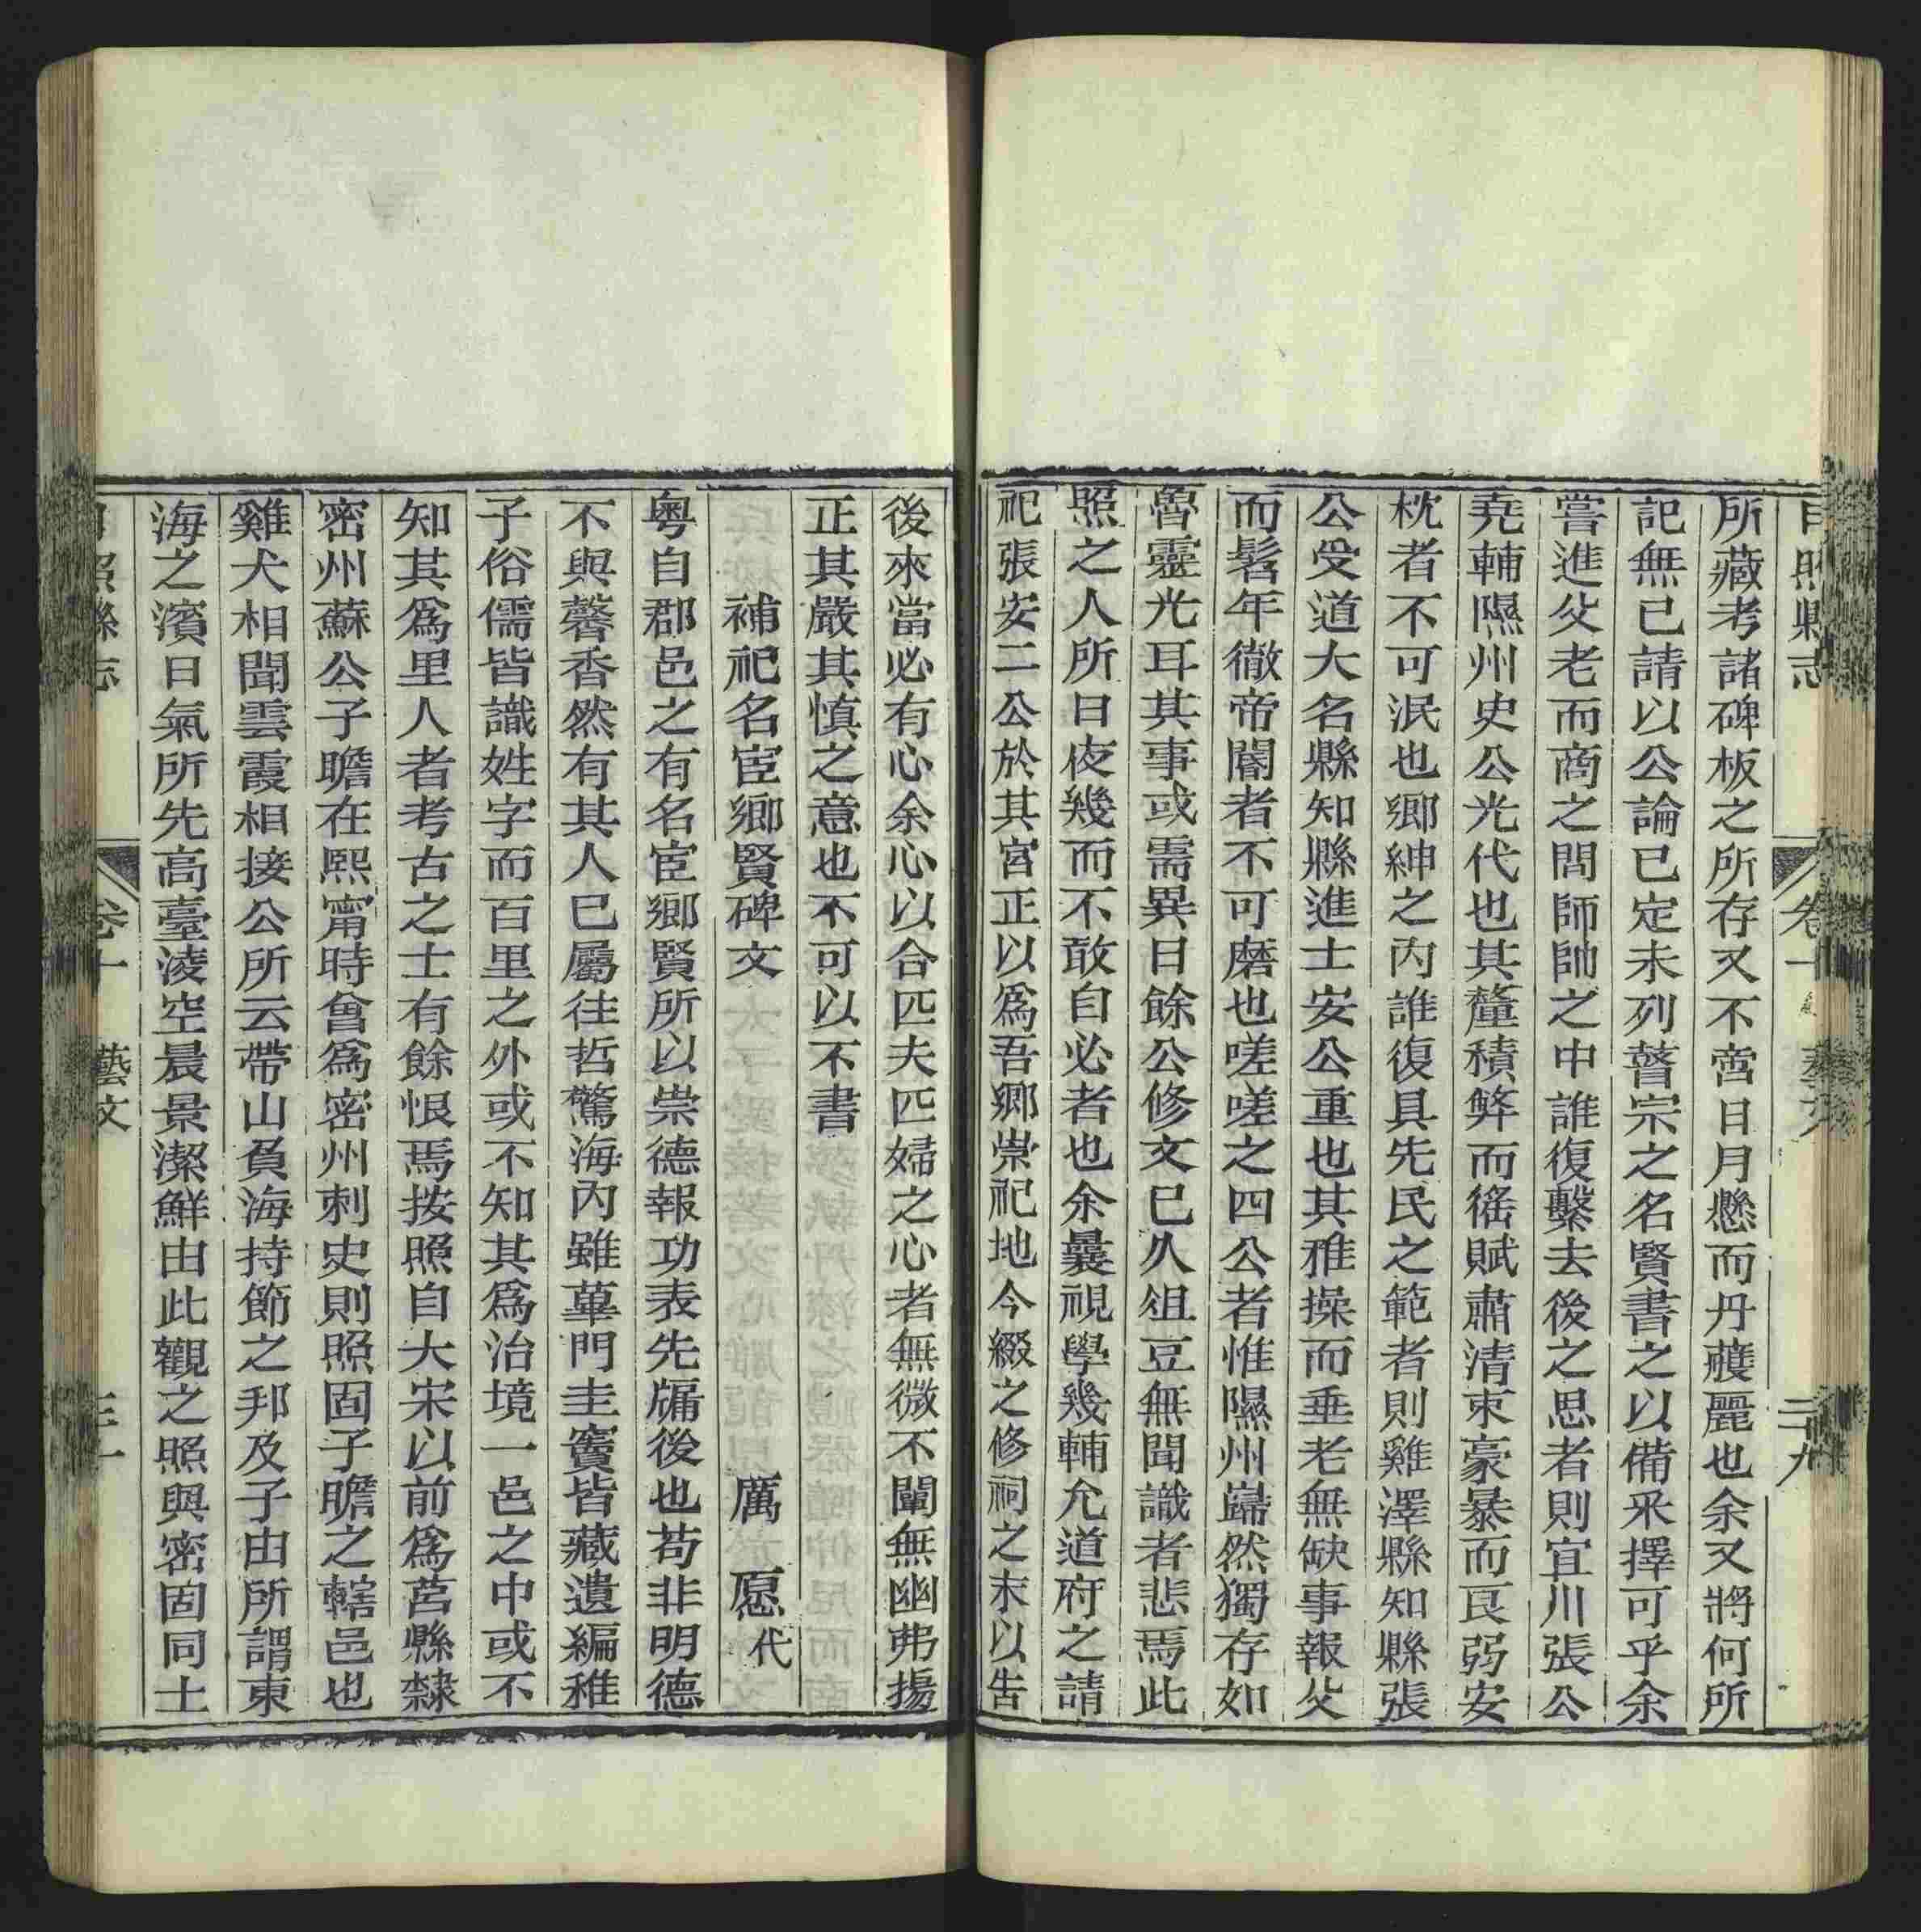 日照縣志 卷十 藝文 二十九
所藏考諸碑板之所存又不啻日月懸而丹雘麗也余又將何所
記無已請以公論已定未列瞽宗之名賢書之以備采擇可乎余
嘗進父老而商之問師帥之中誰復繫去後之思者則宜川張公
堯輔隰州史公光代也其釐積弊而徭賦肅清束豪暴而艮弱安
枕者不可泯也鄉紳之內誰復具先民之範者則雞澤縣知縣張
公受道大名縣知縣進士安公重也其雅操而垂老無缺事報父
而髫年徹帝閽者不可磨也嗟嗟之四公者惟隰州巋然獨存如
魯靈光耳其事或需異日餘公修文已久俎豆無聞識者悲焉此
照之人所日夜幾而不敢自必者也余曩視學幾輔允道府之請
祀張安二公於其宮正以爲吾鄉崇祀地今綴之修祠之末以告
後來當必有心余心以合匹夫匹婦之心者無微不闡無幽弗揚
正其嚴其慎之意也不可以不書
補祀名宦鄉賢碑文 厲 愿代
粤自郡邑之有名宦鄉賢所以崇德報功表先牖後也苟非明德
不與馨香然有其人已屬往哲驚海內雖蓽門圭竇皆藏遺編稚
子俗儒皆識姓字而百里之外或不知其爲治境一邑之中或不
知其爲里人者考古之士有餘恨焉按照自大宋以前爲莒縣隸
密州蘇公子瞻在熙甯時曾爲密州刺史則照固子瞻之轄邑也
雞犬相聞雲霞相接公所云帶山負海持節之邦及子由所謂東
海之濱日氣所先高臺淩空晨景潔鮮由此觀之照與密固同土
日照縣志 卷十 藝文 三十